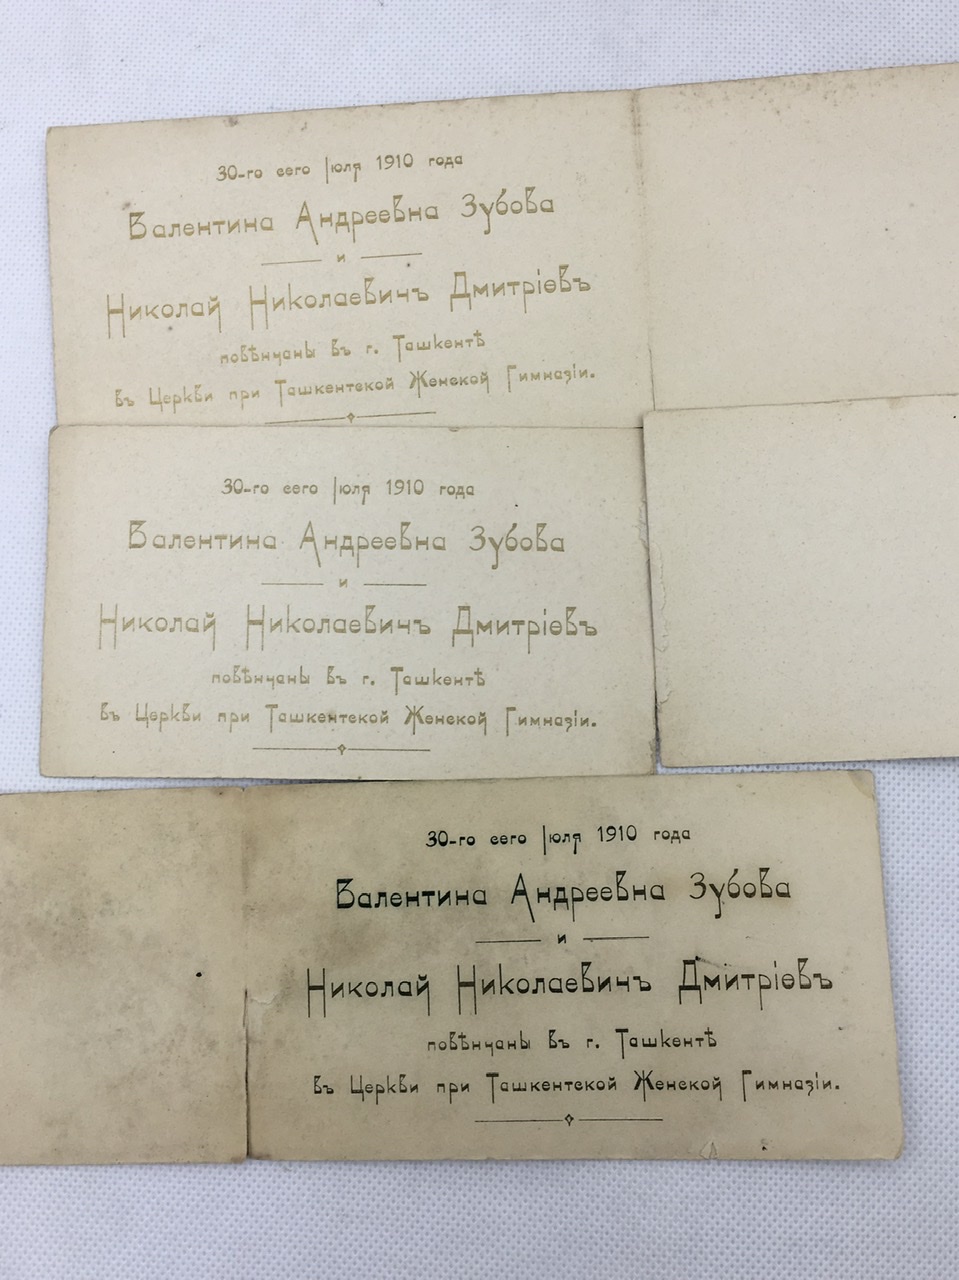 30-го сего Іюля 1910 года
Валентина Андреевна Зубова
и
Николай Николаевичъ Дмитріевъ
повѣнчаны въ г. Ташкентѣ
въ Церкви при Ташкентской Женской Гимназіи.
30-го сего Іюля 1910 года
Валентина Андреевна Зубова
и
Николай Николаевичъ Дмитріевъ
повѣнчаны въ г. Ташкентѣ
въ Церкви при Ташкентской Женской Гимназіи.
30-го сего Іюля 1910 года
Валентина Андреевна Зубова
и
Николай Николаевичъ Дмитріевъ
повѣнчаны въ г. Ташкентѣ
въ Церкви при Ташкентской Женской Гимназіи.